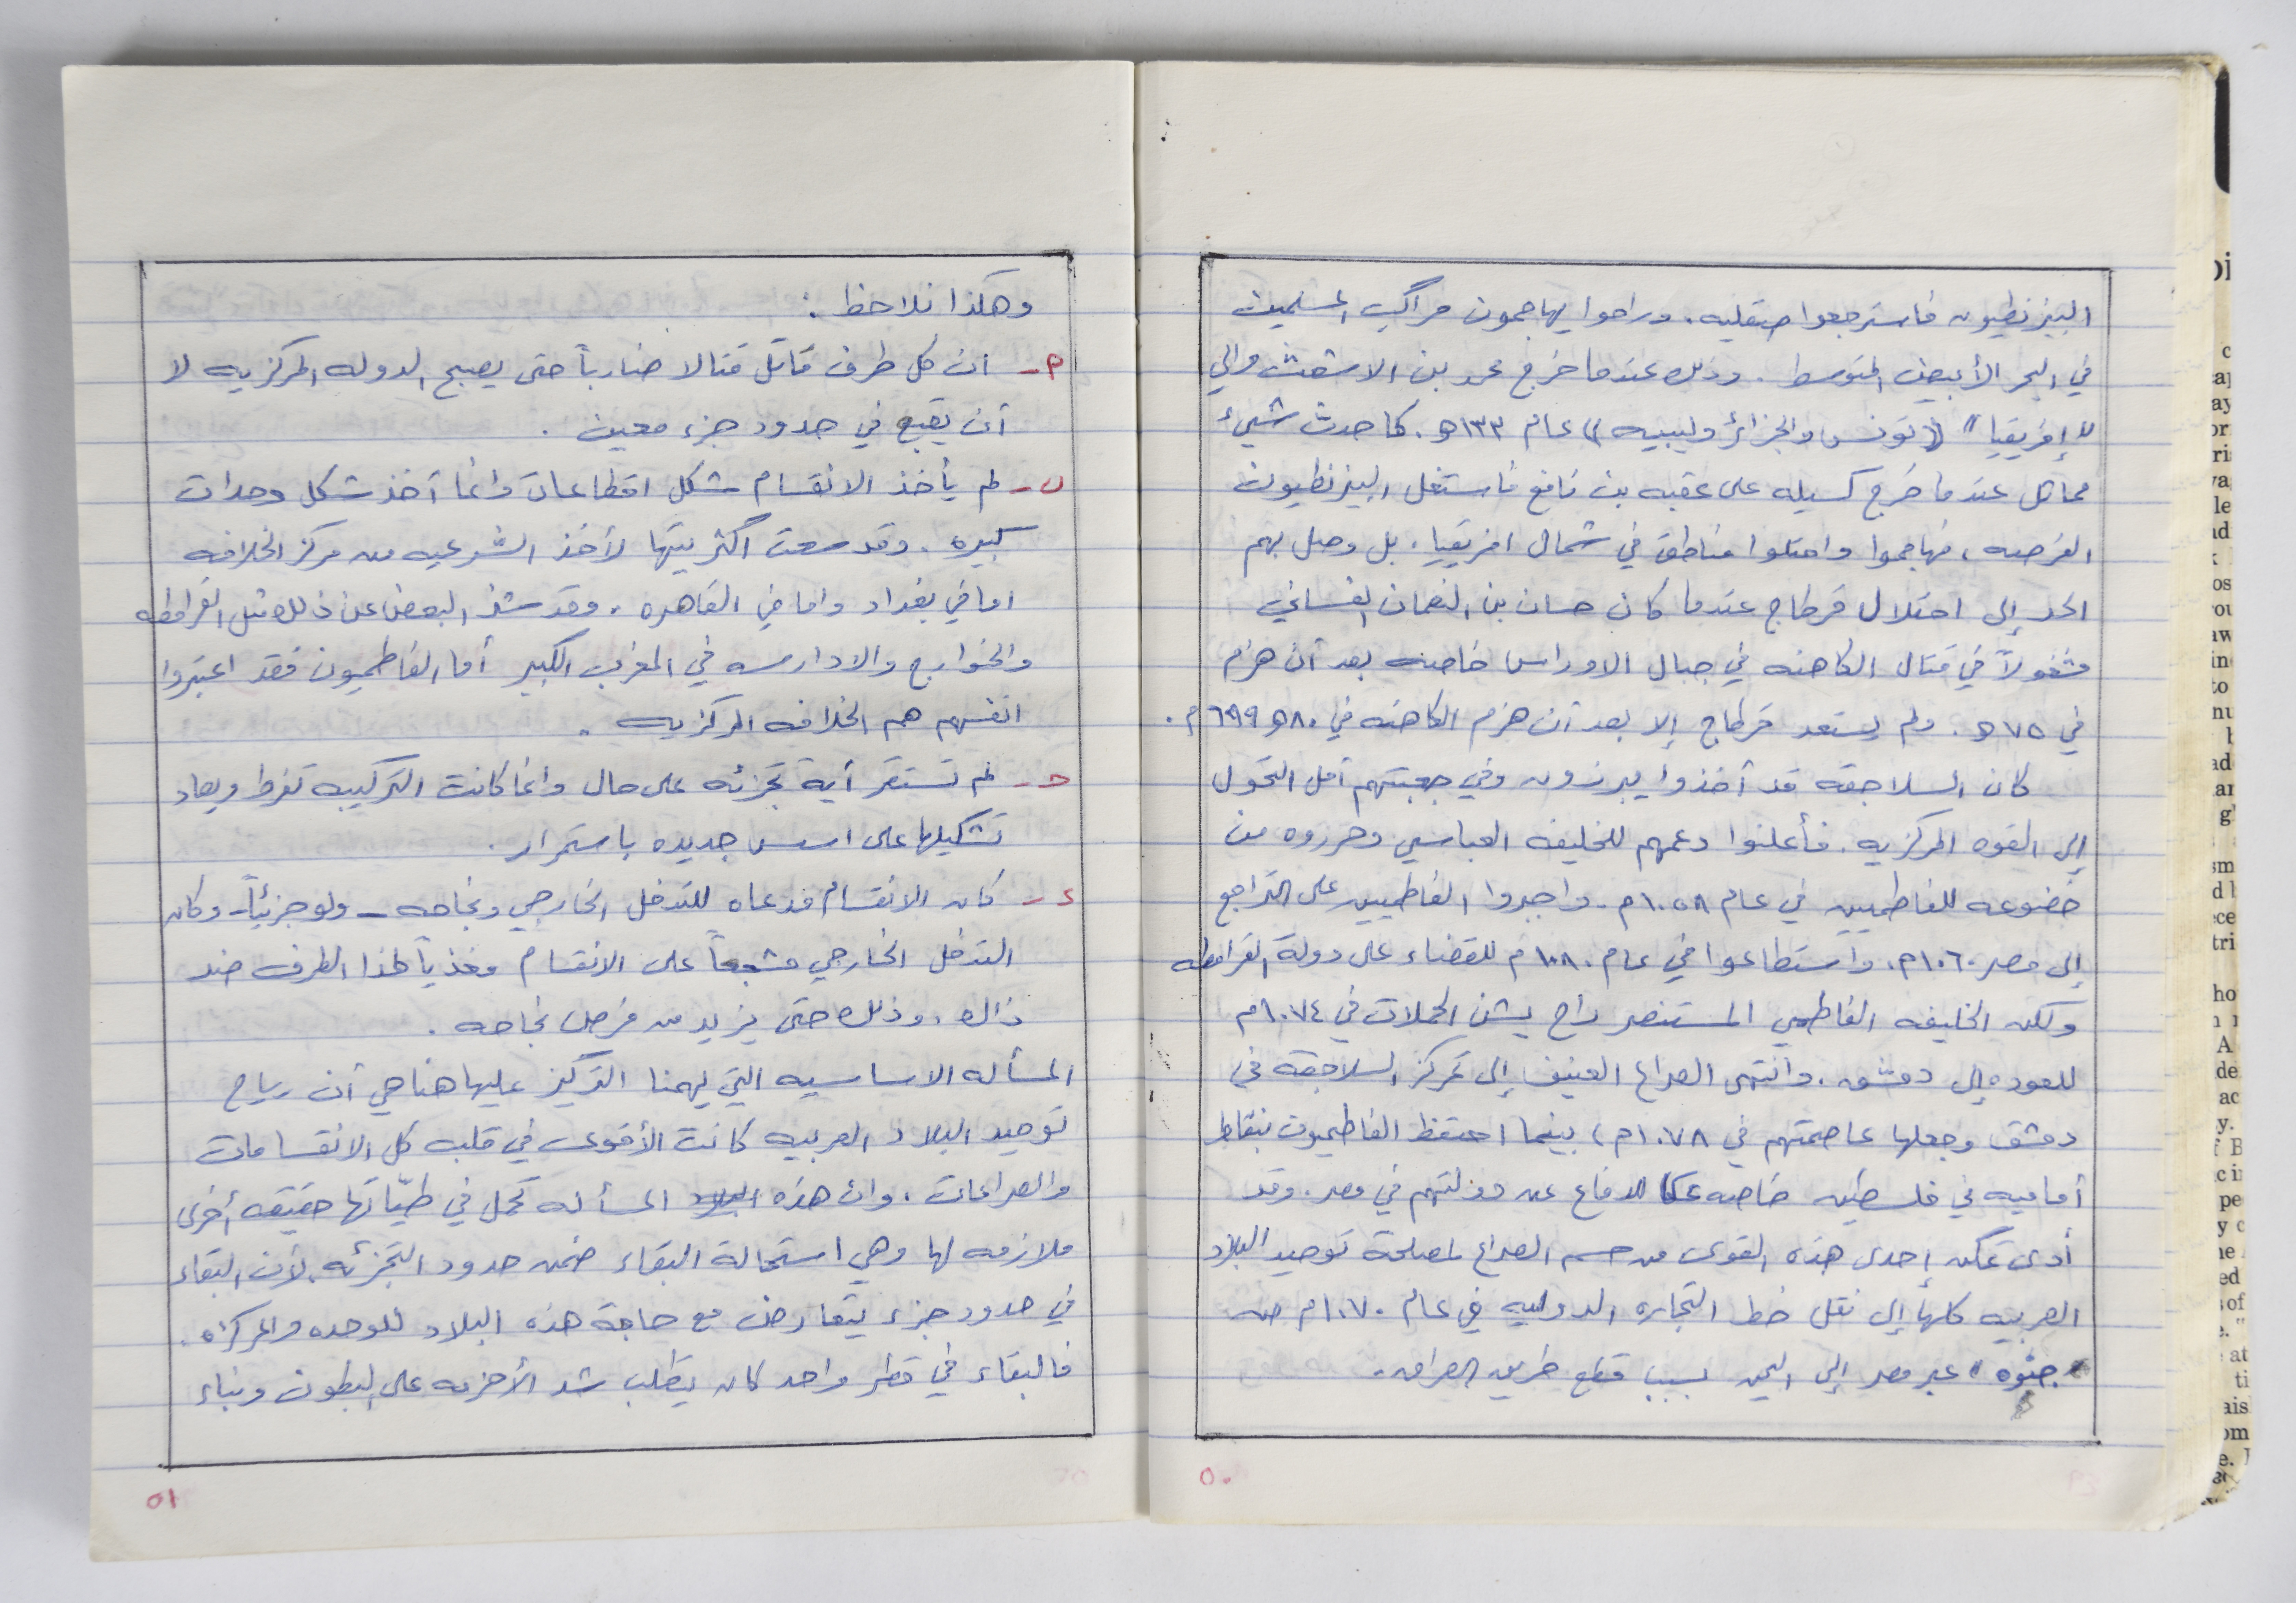 البيزنطيون فاسترجعوا صقليه. وراحوا يهاجمون مراكب المسلمين
في البحر الأبيض المتوسط. وذلك عندما خرج محمد بن الاشعث والي
"إفريقيا" (تونس والجزائر وليبيه) عام ١٣٣هـ. كما حدث شيء
مماثل عندما خرج كسيله على عقبه بن نافع فاستغل البيزنطيون
الفرصه، فهاجموا واحتلوا مناطق في شمال افريقيا. بل وصل بهم
الحد إلى احتلال قرطاج عندما كان حسان بن النعمان الغساني
مشغولاً في قتال الكاهنه في جبال الاوراس خاصه بعد أن هزم
في ٧٥هـ. ولم يستعد قرطاج إلا بعد أن هزم الكاهنه في ٨٠هـ ٦٩٩م.
كان السلاجقه قد أخذوا يبرزون وفي جعبتهم أمل التحول
إلى القوه المركزيه. فأعلنوا دعمهم للخليفه العباسي وحرروه من
خضوعه للفاطميين في عام ١٠٥٨م. واجبروا الفاطميين على التراجع
إلى مصر ١٠٦٠م. واستطاعوا في عام ١٠٨٠م للقضاء على دولة القرامطه
ولكن الخليفه الفاطمي المستنصر راح يشن الحملات في ١٠٧٤م
للعوده إلى دمشق. وانتهى الصراع العنيف إلى تمركز السلاجقه في
دمشق وجعلها عاصمتهم في ١٠٧٨م، بينما احتفظ الفاطميون بنقاط
أماميه في فلسطين خاصه عكا للدفاع عن دولتهم في مصر. وقد
أدى تمكن إحدى هذه القوى من حسم الصراع لمصلحة توحيد البلاد
العربيه كلها إلى نقل خط التجاره الدوليه في عام ١٠٧٠م من
"جنوه" عبر مصر إلى اليمن بسبب قطع طريق العراق.
٥٠
وهكذا نلاحظ :
أ- ان كل طرف قاتل قتالا ضارباً حتى يصبح الدوله المركزيه لا
أن يقبع في حدود جزء معين.
ب- لم يأخذ الانقسام شكل اقطاعات وانما أخذ شكل وحدات
كبيره. وقد سعت اكثريتها لأخذ الشرعيه من مركز الخلافه
اما في بغداد واما في القاهره. وقد شذ البعض عن ذلك مثل القرامطه
والخوارج والادارسه في المغرب الكبير أما الفاطميون فقد اعتبروا
انفسهم هم الخلافه المركزيه.
ج- لم تستقر أية تجزئه على حال وانما كانت التركيبه تفرط ويعاد
تشكيلها على اسس جديده باستمرار.
د- كان الانقسام مدعاه للتدخل الخارجي ونجاحه - ولو جزئياً - وكان
التدخل الخارجي مشجعاً على الانقسام ومغذياً لهذا الطرف ضد
ذاك. وذلك حتى يزيد من فرص نجاحه.
المسأله الاساسيه التي يهمنا التركيز عليها هنا هي أن رياح
توحيد البلاد العربيه كانت الأقوى في قلب كل الانقسامات
والصراعات. وان هذه المسأله تحمل في طيّاتها حقيقه أخرى
ملازمه لها وهي استحالة البقاء ضمن حدود التجزئه. لأن البقاء
في حدود جزء يتعارض مع حاجة هذه البلاد للوحده والمركزه.
فالبقاء في قطر واحد كان يتطلب شد الأحزمه على البطون وبناء
٥١